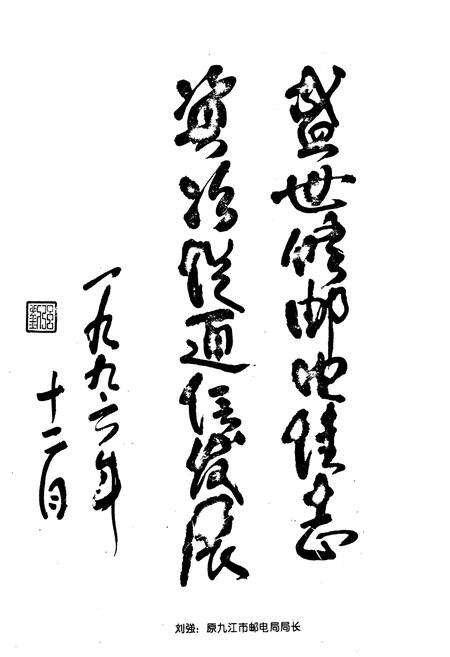 盛世修邮电佳志
资治促通信发展
一九九六年
十二月
刘強：原九江市邮电局局长